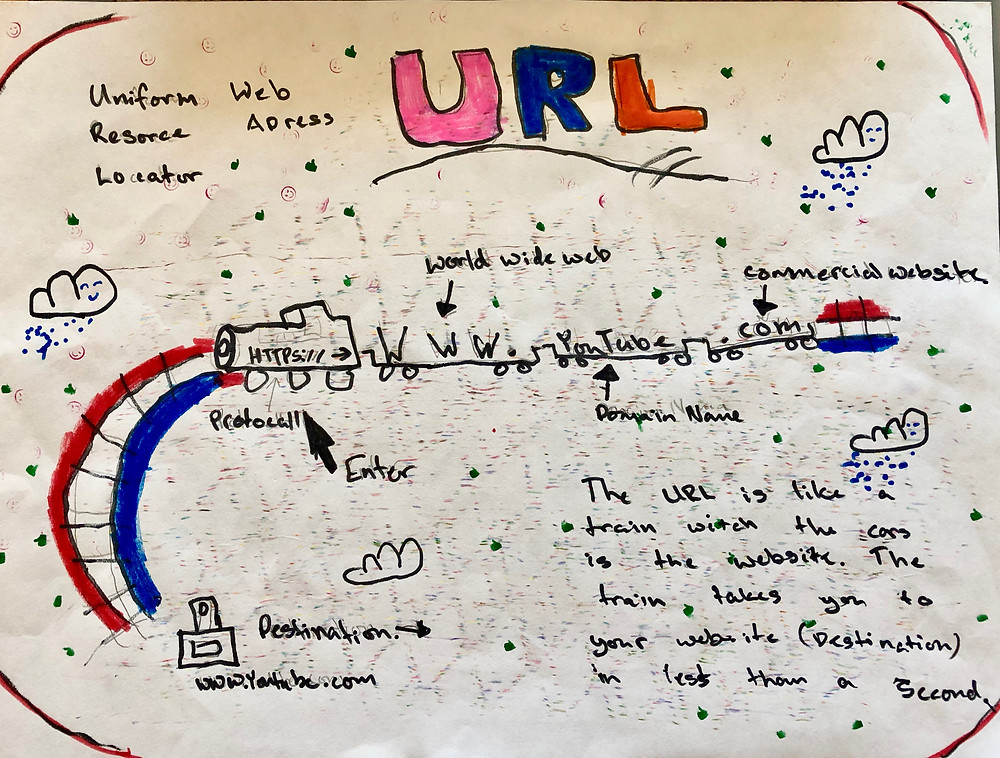 URL
Uniform Web
Resorce Adress
Locator
World wide web
commercial website
HTTPS:// WWW. YouTube .com
Protocall
Domain Name
Enter
The URL is like a
train witch the cars
is the website. The
train takes you to
your website (Destination)
in less than a second.
Destination.
www.Youtube.com